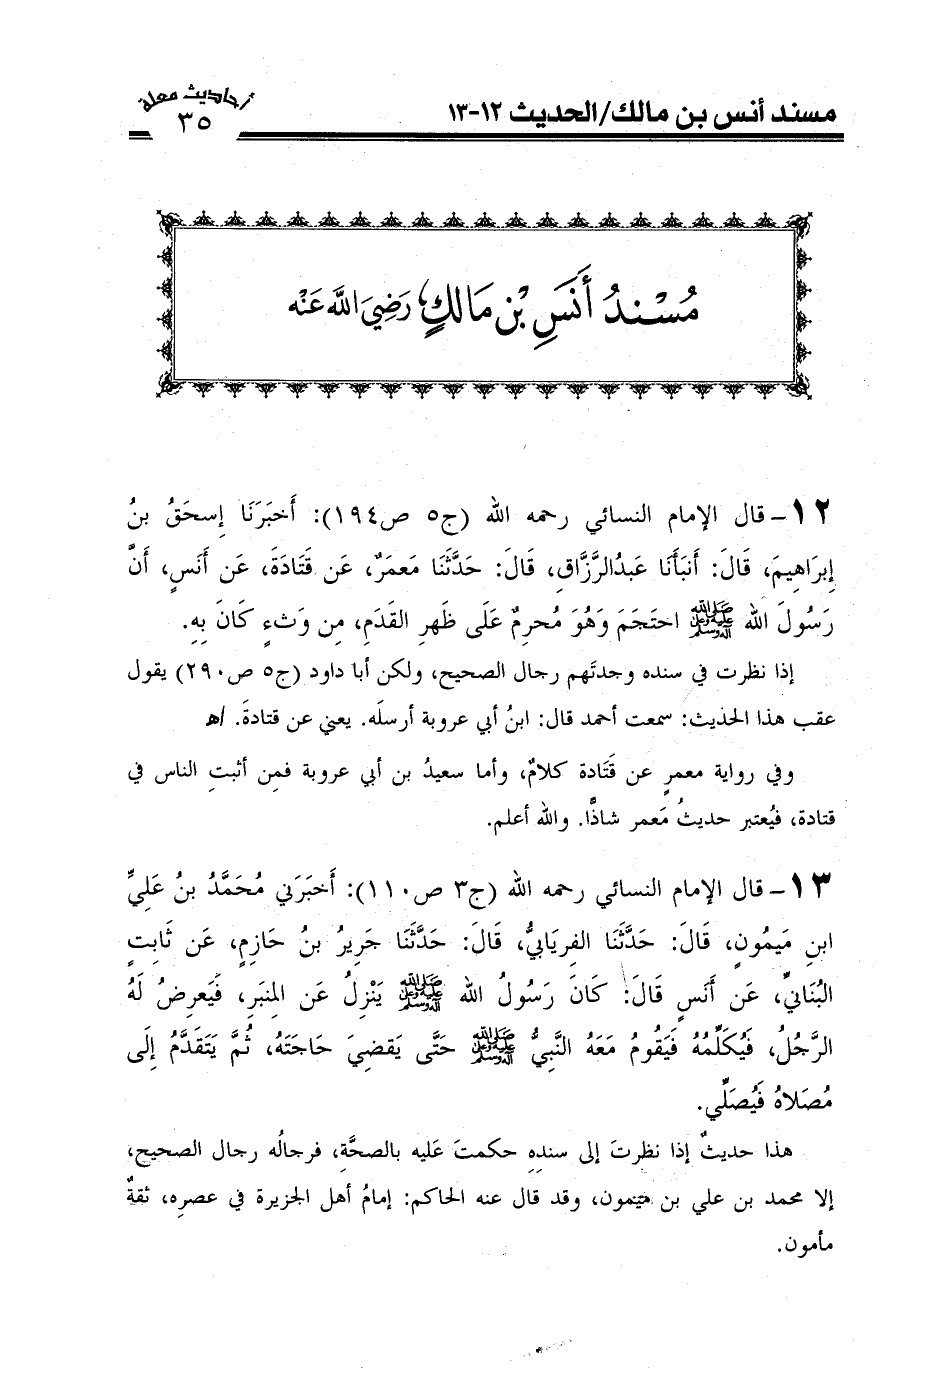 مسند أنس بن مالك/الحديث ١٢-١٣
أحاديث معلة
٣٥
مُسْنَدُ أَنَسِ بْنِ مَالِكٍ رَضِيَ اللَّه عَنْه
١٢ـ قال الإمام النسائي رحمه الله (ج٥ ص١٩٤): أَخبَرَنَا إِسحَقُ بنُ
إِبرَاهِيمَ، قَالَ: أَنبَأَنَا عَبدُالرَّزَّاقِ، قَالَ: حَدَّثَنَا مَعمَرٌ، عَن قَتَادَةَ، عَن أَنَسٍ، أَنَّ
رَسُولَ الله ﷺ احتَجَمَ وَهُوَ مُحرِمٌ عَلَى ظَهرِ القَدَمِ، مِن وَثءٍ كَانَ بِهِ.
إذا نظرت في سنده وجدتَهم رجال الصحيح، ولكن أبا داود (ج٥ ص٢٩٠) يقول
عقب هذا الحديث: سمعت أحمد قال: ابنُ أبي عروبة أرسلَه. يعني عن قتادةَ. اﻫ
وفي رواية معمرٍ عن قَتَادة كلامٌ، وأما سعيدُ بن أبي عروبة فمِن أثبتِ الناس في
قتادة، فيُعتبر حديثُ مَعمر شاذًّا. والله أعلم.
١٣ـ قال الإمام النسائي رحمه الله (ج٣ ص١١٠): أَخبَرَنِي مُحَمَّدُ بنُ عَلِيِّ
ابنِ مَيمُونٍ، قَالَ: حَدَّثَنَا الفِريَابِيُّ، قَالَ: حَدَّثَنَا جَرِيرُ بنُ حَازِمٍ، عَن ثَابِتٍ
البُنَانِيِّ، عَن أَنَسٍ قَالَ: كَانَ رَسُولُ الله ﷺ يَنْزِلُ عَن المِنبَرِ، فَيَعرِضُ لَهُ
الرَّجُلُ، فَيُكَلِّمُهُ فَيَقُومُ مَعَهُ النَّبِيُّ ﷺ حَتَّى يَقضِيَ حَاجَتَهُ، ثُمَّ يَتَقَدَّمُ إِلَى
مُصَلاهُ فَيُصَلِّي.
هذا حديثٌ إذا نظرتَ إلى سندِهِ حكمتَ عَليه بالصحَّةِ، فرجالُه رجال الصحيح،
إلا محمد بن علي بن ميمون، وقد قال عنه الحاكم: إمامُ أهل الجزيرة في عصرِه، ثقةٌ
مأمون.